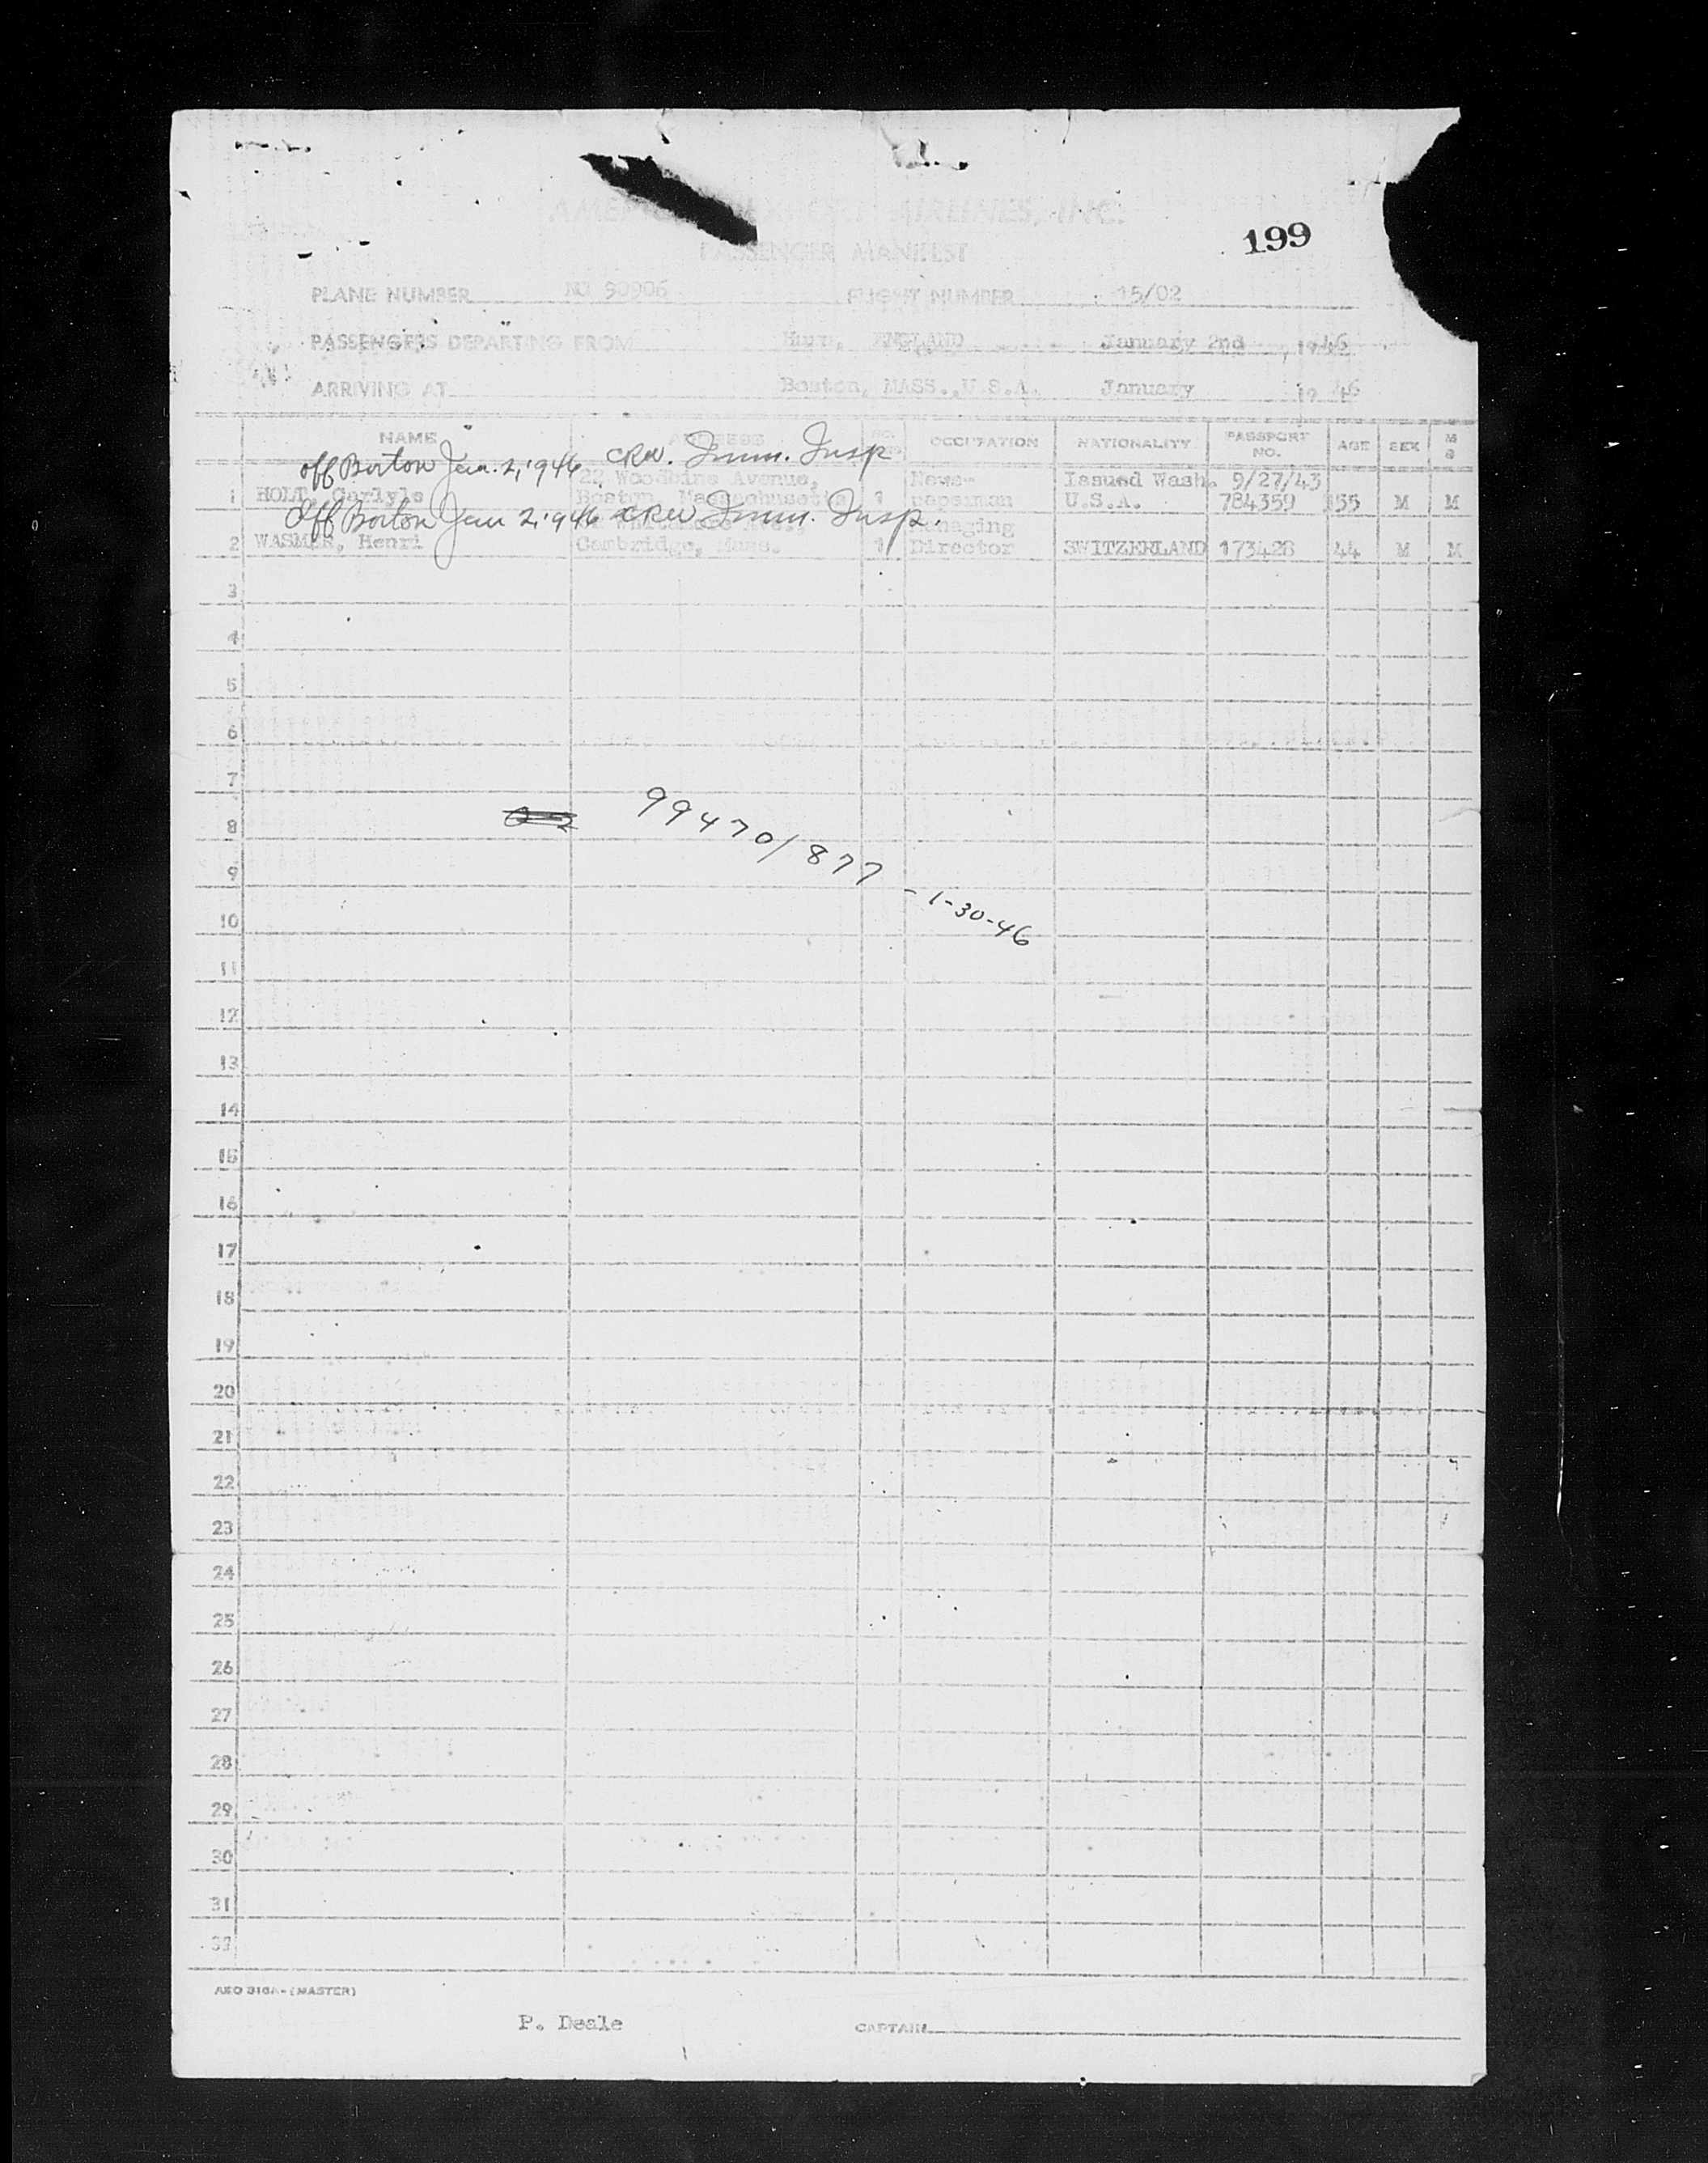 199
AIRLINES, INC.
PASSENGER MANIFEST
PLANE NUMBER NC 90906 FLIGHT NUMBER 15/02
PASSENGERS DEPARTING FROM Hurn, ENGLAND January 2nd, 1946
ARRIVING AT Boston, MASS., U.S.A. January 1946
NAME ADDRESS NO. OCCUPATION NATIONALITY PASSPORT NO. AGE SEX M S
off Boston Jan. 2, 1946 CRW. Imm. Insp
22 Woodbine Avenue, News- Issued Wash. 9/27/43
1 HOLT, Carlyle Boston, Massachusetts 1 paperman U.S.A. 784359 55 M M
Off Boston Jan 2, 1946 CRW Imm. Insp.
Managing
2 WASMER, Henri Cambridge, Mass. 1 Director SWITZERLAND 173428 44 M M
3
4
5
6
7
99470/877 - 1-30-46
8
9
10
11
12
13
14
15
16
17
18
19
20
21
22
23
24
25
26
27
28
29
30
31
32
AEO 318A-(MASTER)
P. Deale CAPTAIN